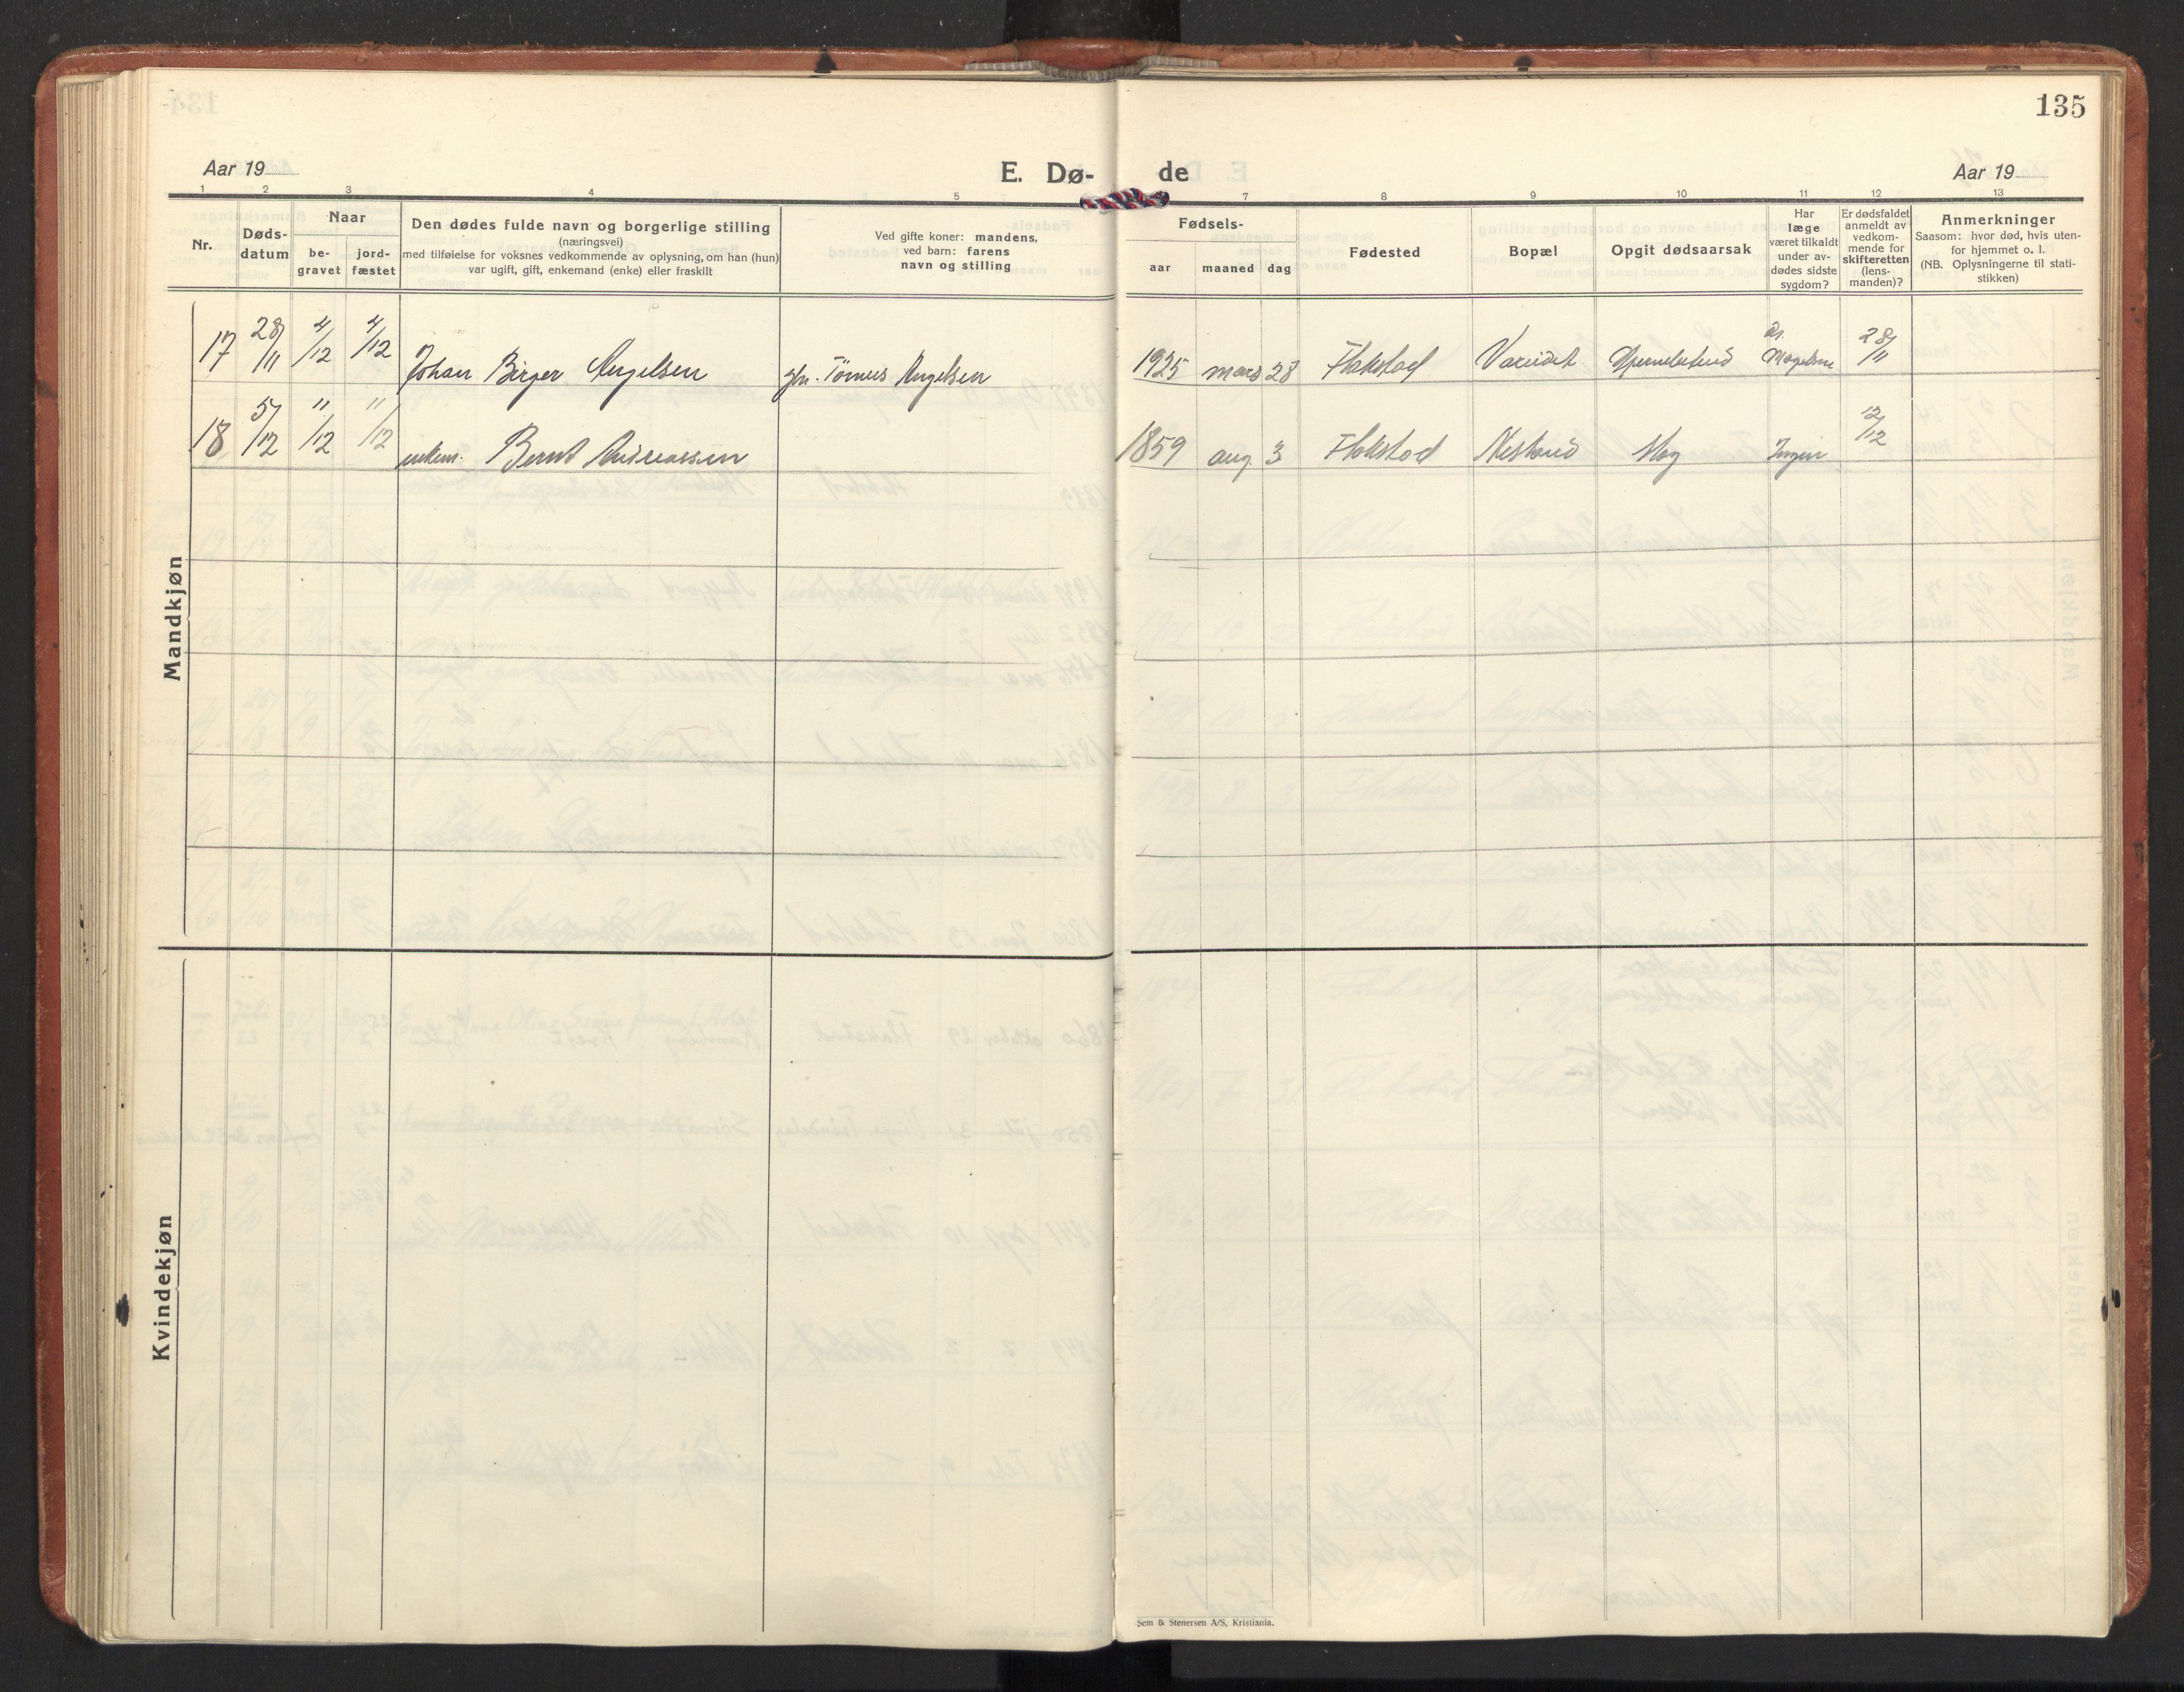 135
Aar 19
E. Dø-
de
Aar 19
1 2 3 4 5 7 8 9 10 11 12 13
Nr.
Døds-
datum
Naar
be-
gravet
jord-
fæstet
Den dødes fulde navn og borgerlige stilling
(næringsvei)
med tilføielse for voksnes vedkommende av oplysning, om han (hun)
var ugift, gift, enkemand (enke) eller fraskilt
Ved gifte koner: mandens,
ved barn: farens
navn og stilling
Fødsels-
aar maaned dag
Fødested
Bopæl
Opgit dødsaarsak
Har
læge
været tilkaldt
under av-
dødes sidste
sygdom?
Er dødsfaldet
anmeldt av
vedkom-
mende for
skifteretten
(lens-
manden)?
Anmerkninger
Saasom: hvor død, hvis uten-
for hjemmet o. l.
(NB. Oplysningerne til stati-
stikken)
Mandkjøn
17 28/11 4/12 4/12 Johan Birger Angelsen Tømes Angelsen 1925 mars 28 Flakstad Vareidet dr. 28/11
18 5/12 11/12 11/12 enkem. Bernt Andreassen 1859 aug. 3 Flakstad Nesland Slag Ingen 12/12
Kvindekjøn
Sem & Stenersen A/S, Kristiania.